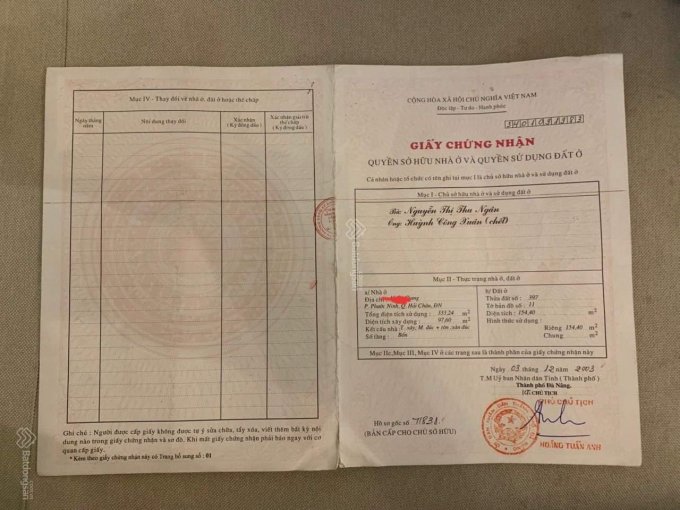 Mục IV - Thay đổi về nhà ở, đất ở hoặc thế chấp
Ngày tháng năm
Nội dung thay đổi
Xác nhận (Ký đóng dấu)
Xác nhận giải trừ thế chấp (Ký đóng dấu)
Ghi chú : Người được cấp giấy không được tự ý sửa chữa, tẩy xóa, viết thêm bất kỳ nội
dung nào trong giấy chứng nhận và sơ đồ. Khi mất giấy chứng nhận phải báo ngay với cơ
quan cấp giấy.
* Kèm theo giấy chứng nhận này có Trang bổ sung số : 01
CỘNG HÒA XÃ HỘI CHỦ NGHĨA VIỆT NAM
Độc lập - Tự do - Hạnh phúc
GIẤY CHỨNG NHẬN
QUYỀN SỞ HỮU NHÀ Ở VÀ QUYỀN SỬ DỤNG ĐẤT Ở
Cá nhân hoặc tổ chức có tên ghi tại mục I là chủ sở hữu nhà ở và sử dụng đất ở
Mục I - Chủ sở hữu nhà ở và sử dụng đất ở
Bà: Nguyễn Thị Thu Ngân
Ông: Huỳnh Công Xuân (chết)
Mục II - Thực trạng nhà ở, đất ở
a/ Nhà ở
Địa chỉ
P. Phước Ninh, Q. Hải Châu, ĐN
Tổng diện tích sử dụng : 333,24 m2
Diện tích xây dựng : 97,60 m2
Kết cấu nhà : T. xây, M. đúc + tôn, sàn đúc
Số tầng : Bốn
b/ Đất ở
Thửa đất số : 397
Tờ bản đồ số : 11
Diện tích : 154,40 m2
Hình thức sử dụng :
Riêng 154,40 m2
Chung m2
Mục IIc, Mục III, Mục IV ở các trang sau là thành phần của giấy chứng nhận này
Ngày 03 tháng 12 năm 2003
T.M Uỷ ban Nhân dân Tỉnh ( Thành phố )
Thành phố Đà Nẵng.
CHỦ TỊCH
PHÓ CHỦ TỊCH
HOÀNG TUẤN ANH
Hồ sơ gốc số
(BẢN CẤP CHO CHỦ SỞ HỮU)
Batdongsan
Batdongsan